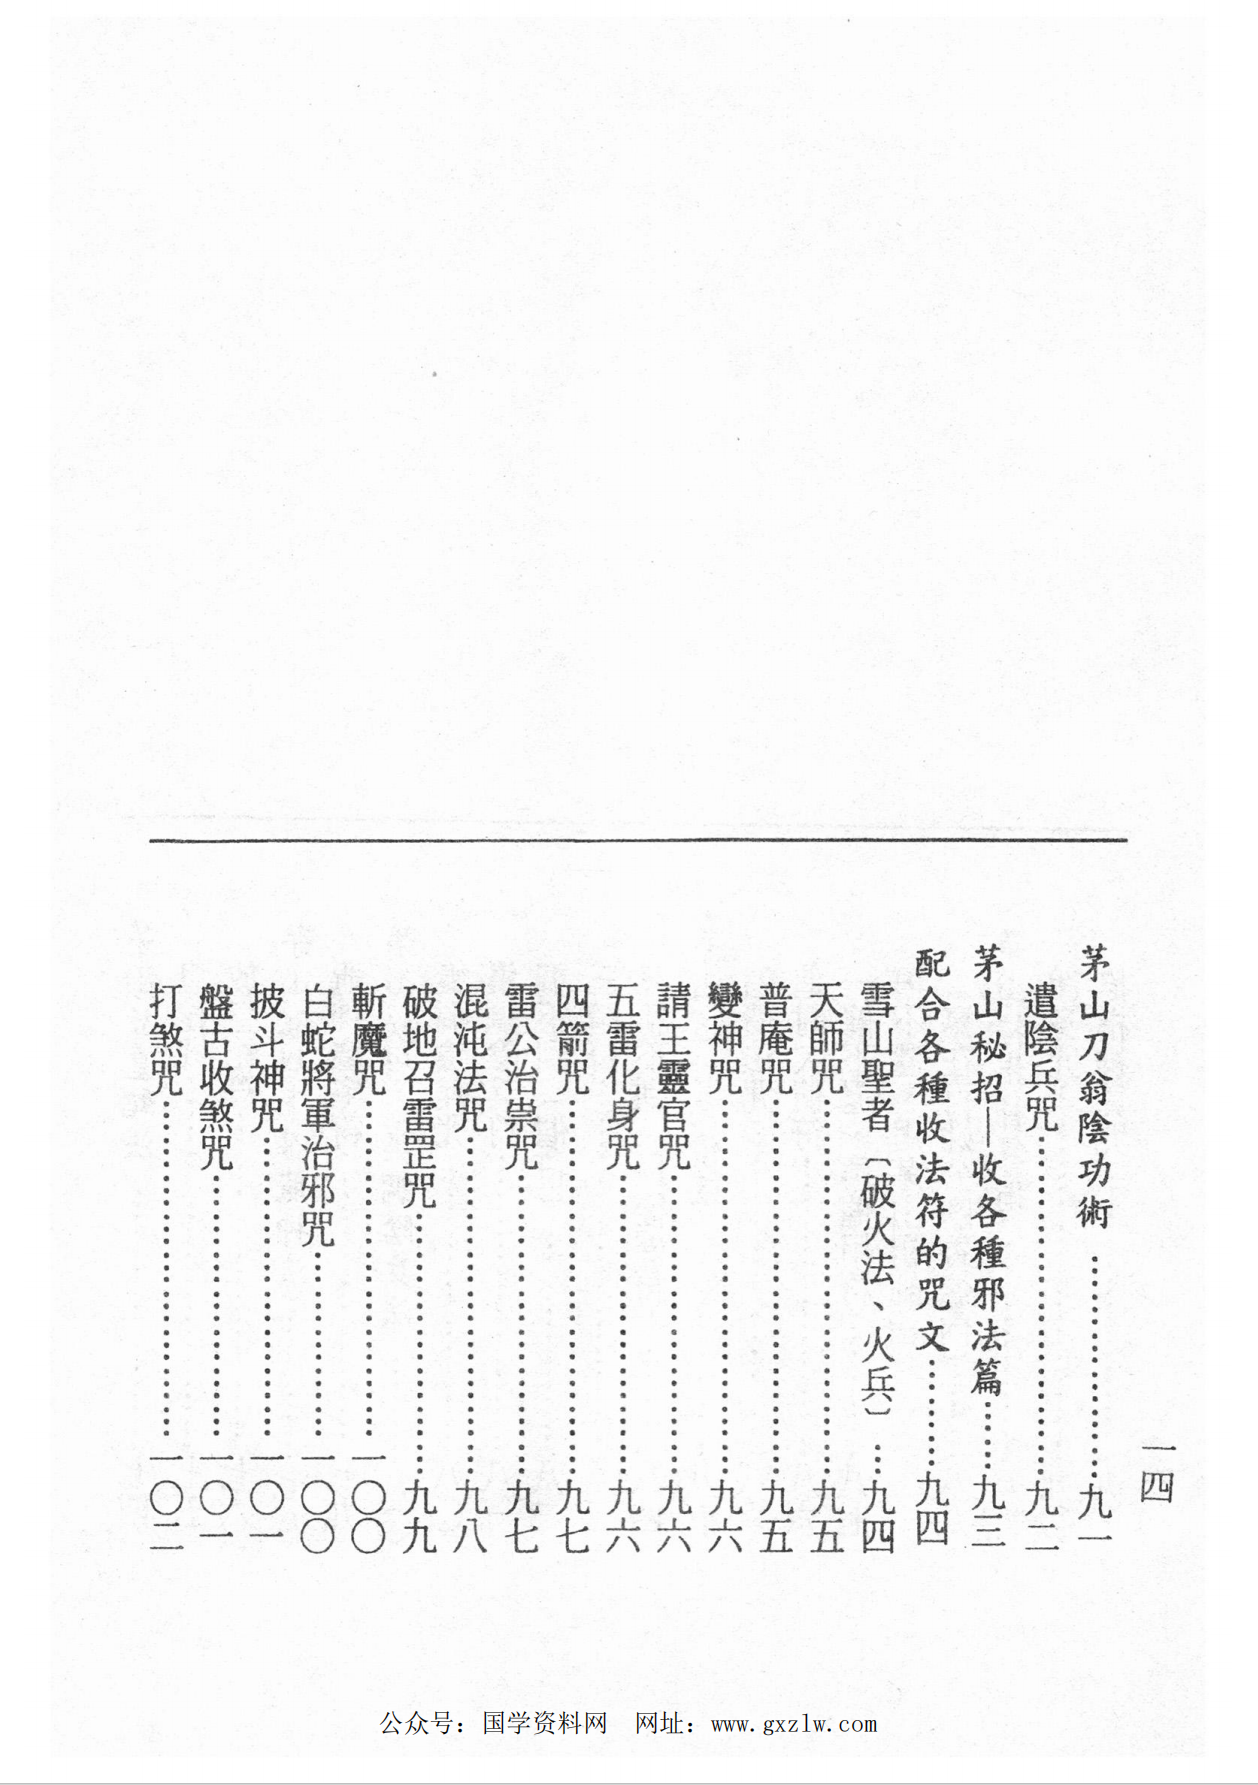 一四
茅山刀翁陰功術……………………九一
遣陰兵咒……………………九二
茅山秘招—收各種邪法篇………九三
配合各種收法符的咒文…………九四
雪山聖者〔破火法、火兵〕…九四
天師咒……………………九五
普庵咒……………………九五
變神咒……………………九六
請王靈官咒……………………九六
五雷化身咒……………………九六
四箭咒……………………九七
雷公治祟咒……………………九七
混沌法咒……………………九八
破地召雷罡咒……………………九九
斬魔咒……………………一〇〇
白蛇將軍治邪咒……………………一〇〇
披斗神咒……………………一〇一
盤古收煞咒……………………一〇一
打煞咒……………………一〇二
公众号：国学资料网　网址：www.gxzlw.com